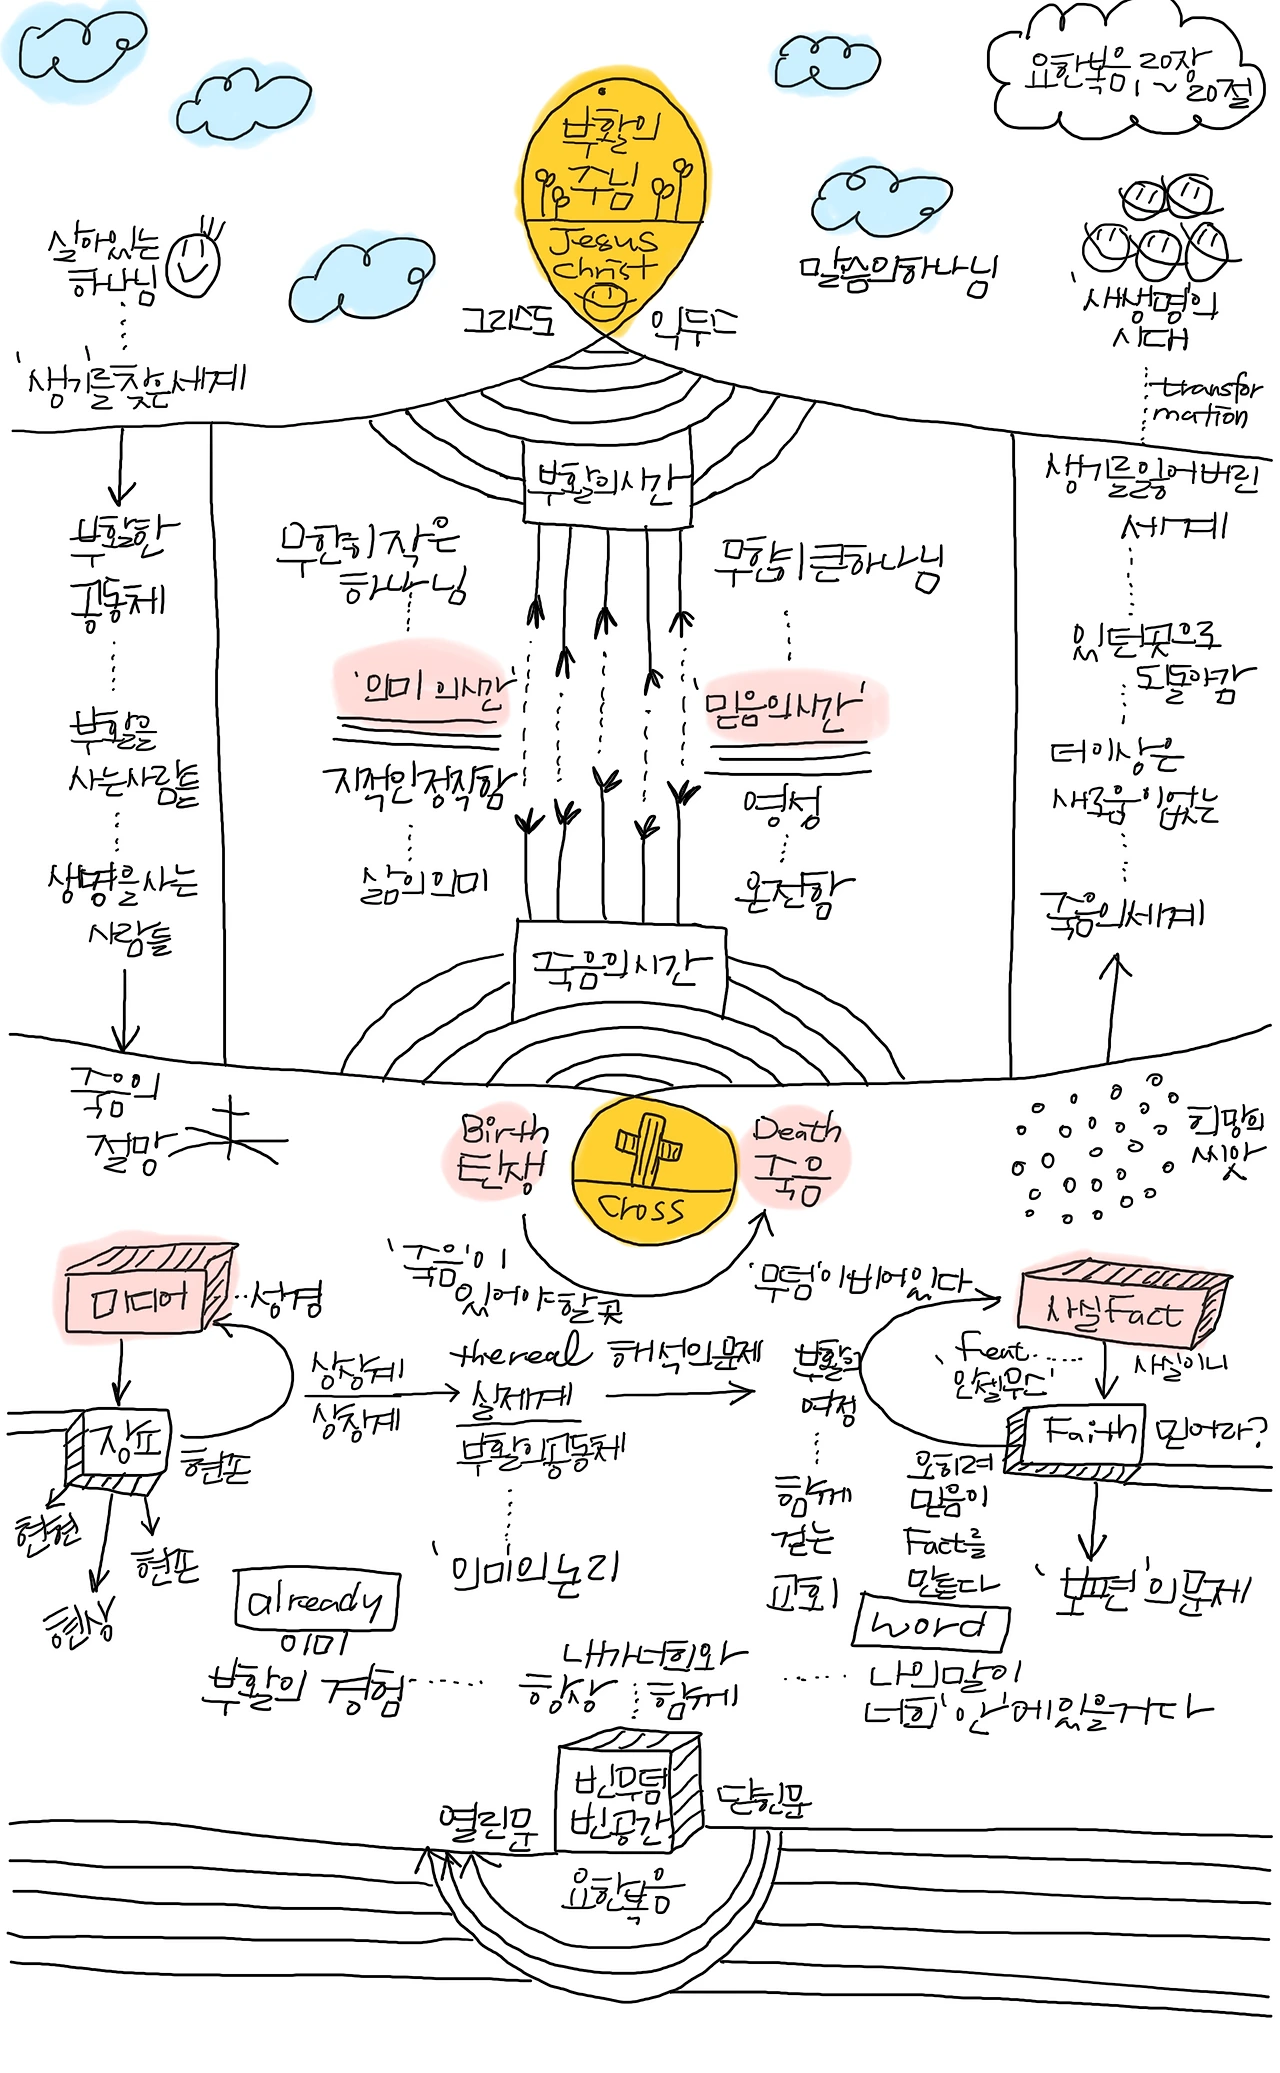 요한복음 20장
1~20절
부활의
주님
Jesus
Christ
그리스도
익두스
살아있는
하나님
'생기'를 찾은 세계
말씀의 하나님
'새생명'의
시대
transfor
mation
부활의 시간
부활한
공동체
부활을
사는 사람들
생명을 사는
사람들
무한히 작은
하나님
'의미의 시간'
지적인 정직함
삶의 의미
무한히 큰 하나님
'믿음의 시간'
영성
온전함
생기를 잃어버린
세계
있던 곳으로
되돌아감
더 이상은
새로움이 없는
죽음의 세계
죽음의 시간
죽음의
절망
Birth
탄생
Cross
Death
죽음
희망의
씨앗
'죽음'이
있어야 할 곳
'무덤'이 비어있다
미디어
성경
장프
현존
현현
현존
현상
상상계
상징계
the real
실제계
부활의 공동체
'의미'의 논리
해석의 문제
부활의
여정
함께
걷는
교회
사실 Fact
'Feat.
안셀무스'
사실이니
Faith
믿어라?
오히려
믿음이
Fact를
만든다
'보편'의 문제
already
이미
부활의 경험
내가 너희와
항상 함께
word
나의 말이
너희 '안'에 있을 거다
빈무덤
빈공간
열린문
닫힌문
요한복음